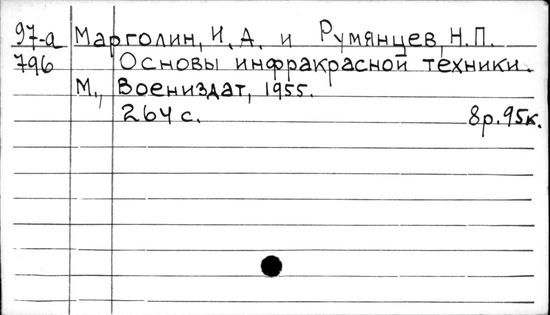 97-а Марголин, И. А. и Румянцев, Н.П.
796 Основы инфракрасной техники.
М., Воениздат, 1955.
264 с. 8р.95к.